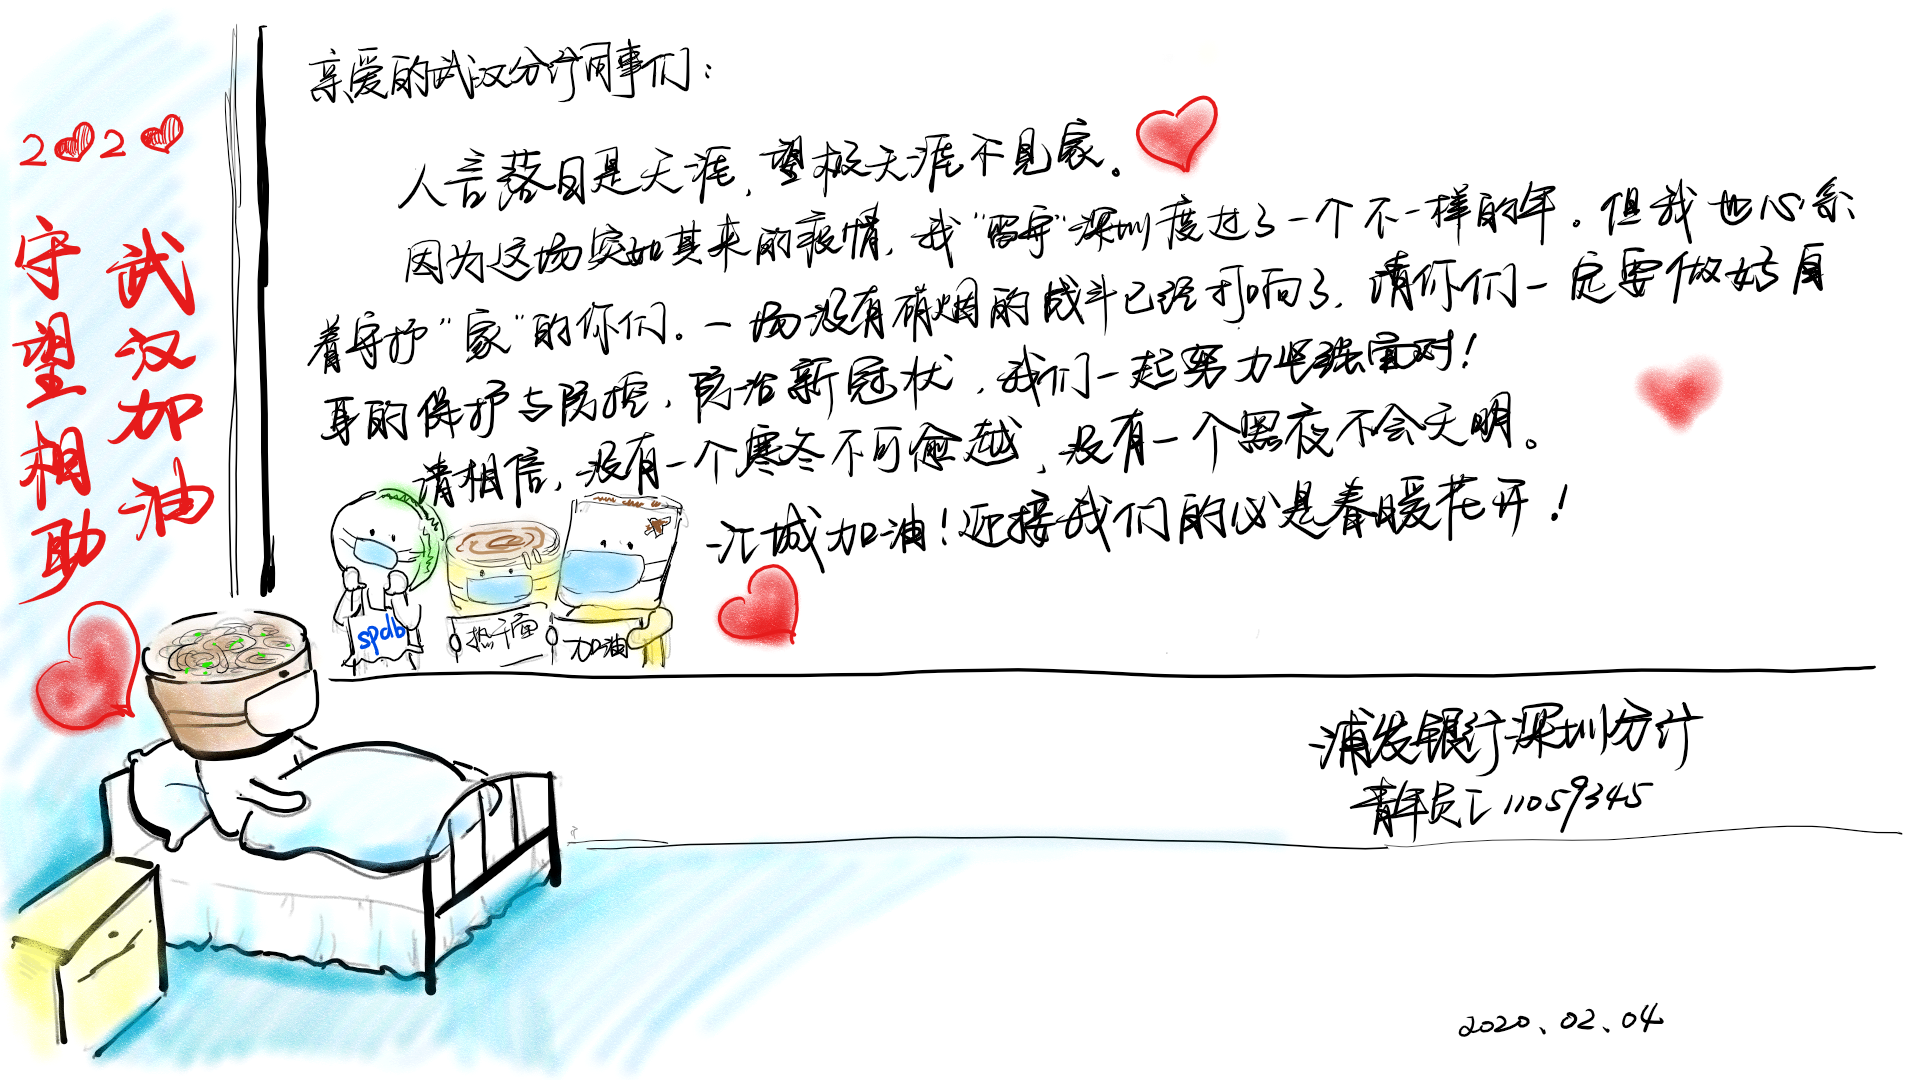 2020
武汉加油
守望相助
亲爱的武汉分行同事们：
人言落日是天涯，望极天涯不见家。
因为这场突如其来的疫情，我“留守”深圳度过了一个不一样的年。但我也心系
着守护“家”的你们。一场没有硝烟的战斗已经打响了，请你们一定要做好自
身的保护与防控，防治新冠状，我们一起努力坚强面对！
请相信，没有一个寒冬不可愈越，没有一个黑夜不会天明。
江城加油！迎接我们的必是春暖花开！
spdb
热干面
加油
浦发银行深圳分行
青年员工11059345
2020.02.04